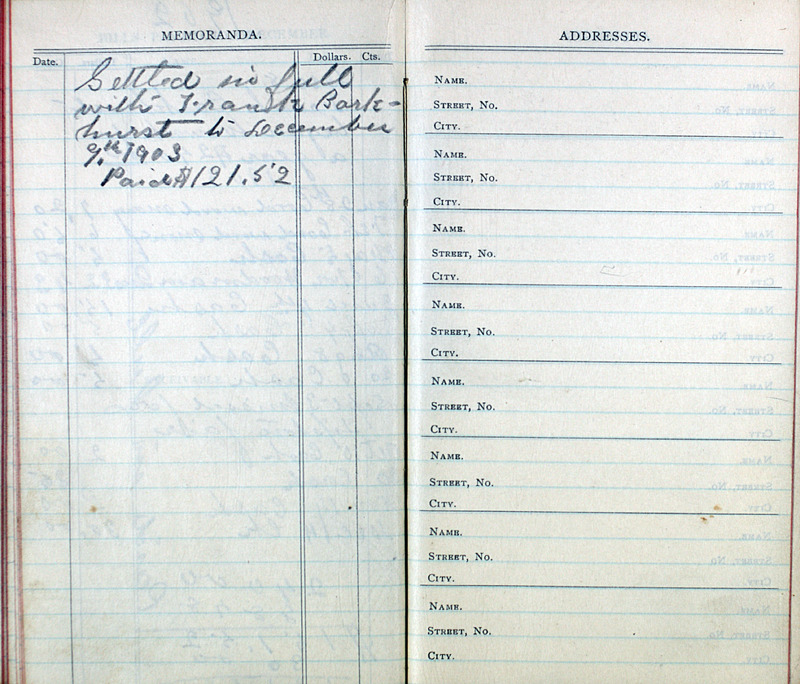 MEMORANDA.
Date. Dollars. Cts.
Settled in full
with Frank Bark-
hurst to December
9th 1903
Paid $121.52
ADDRESSES.
Name.
Street, No.
City.
Name.
Street, No.
City.
Name.
Street, No.
City.
Name.
Street, No.
City.
Name.
Street, No.
City.
Name.
Street, No.
City.
Name.
Street, No.
City.
Name.
Street, No.
City.